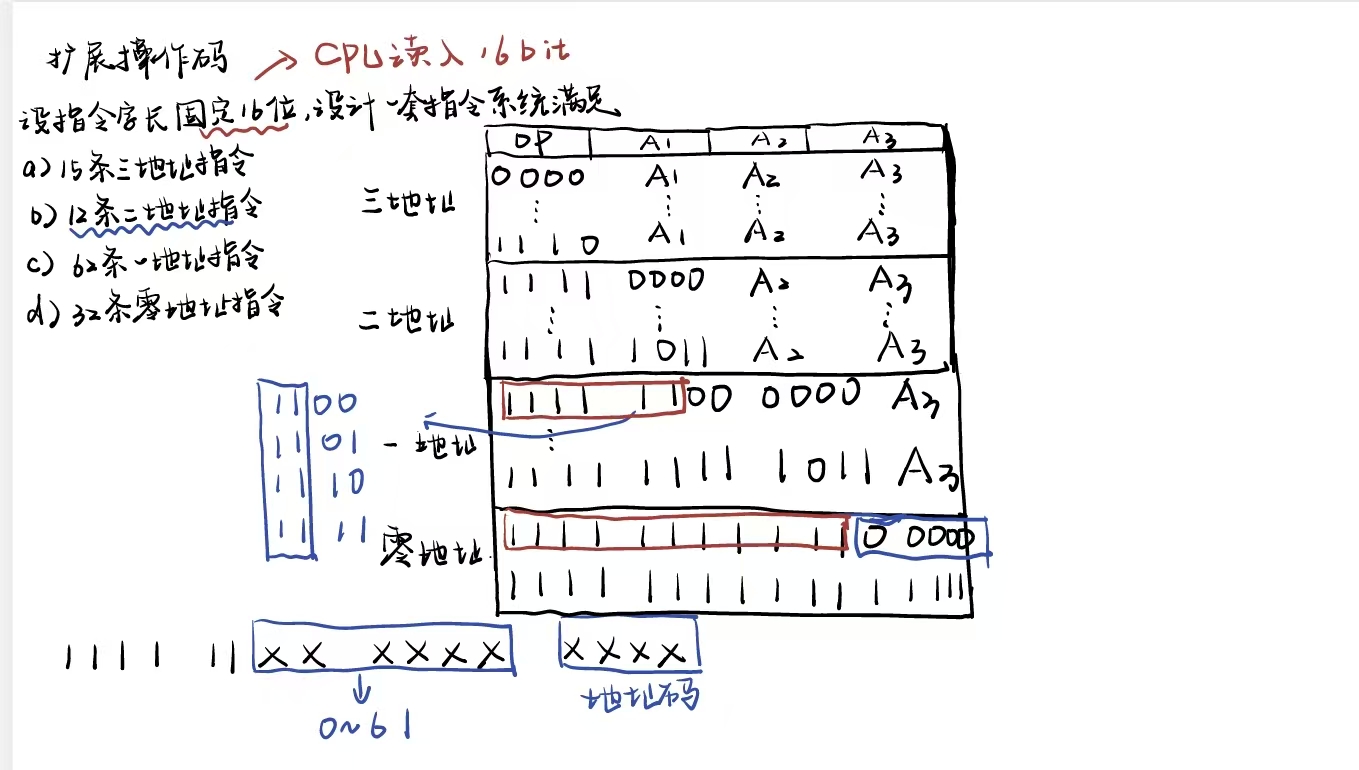 扩展操作码 → CPU读入16bit
设指令字长固定16位,设计一套指令系统满足
a) 15条三地址指令
b) 12条二地址指令
c) 62条一地址指令
d) 32条零地址指令
OP A1 A2 A3
三地址
0000 A1 A2 A3
⋮ ⋮ ⋮ ⋮
1110 A1 A2 A3
二地址
1111 0000 A2 A3
⋮ ⋮ ⋮ ⋮
1111 1011 A2 A3
一地址
1111 1100 0000 A3
⋮
1111 1111 1011 A3
1100
1101
1110
1111
零地址
1111 1111 1110 0000
1111 1111 1111 1111
1111 11XX XXXX XXXX
地址码
0~61